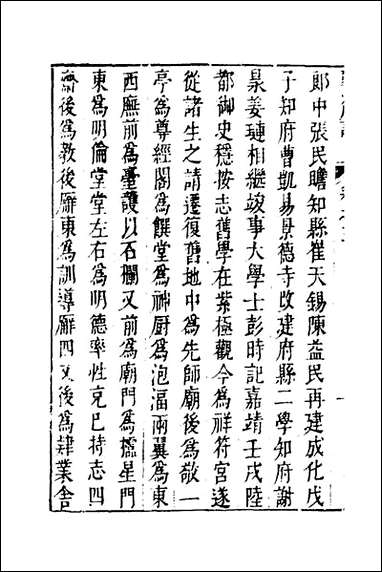 郎中張民瞻知縣崔天錫陳益民再建成化戊
子知府曹凱易景德寺改建府縣二學知府謝
杲姜璉相繼竣事大學士彭時記嘉靖壬戌陸
都御史穩按志舊學在紫極觀今為祥符宮遂
從諸生之請遷復舊地中為先師廟後為敬一
亭為尊經閣為饌堂為神厨為泡湢兩翼為東
西廡前為臺護以石欄又前為廟門為櫺星門
東為明倫堂堂左右為明德率性克巳持志四
齋後為教後廨東為訓導廨四又後為肄業舍